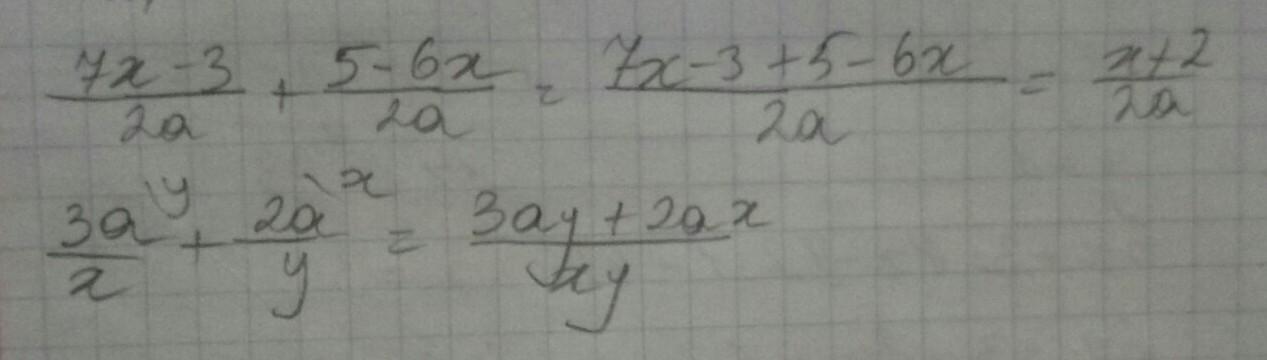 (7x-3)/(2a) + (5-6x)/(2a) = (7x-3+5-6x)/(2a) = (x+2)/(2a)
(3a\y)/x + (2a\x)/y = (3ay+2ax)/(xy)